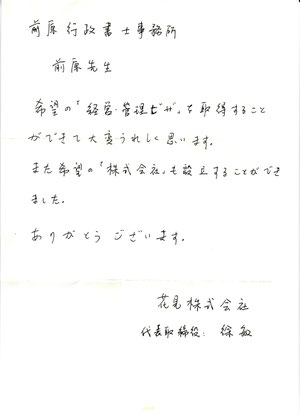 前原行政書士事務所
前原先生
希望の「経営・管理ビザ」を取得すること
ができて大変うれしく思います。
また希望の「株式会社」も設立することができ
ました。
ありがとうございます。
花見株式会社
代表取締役：徐敏